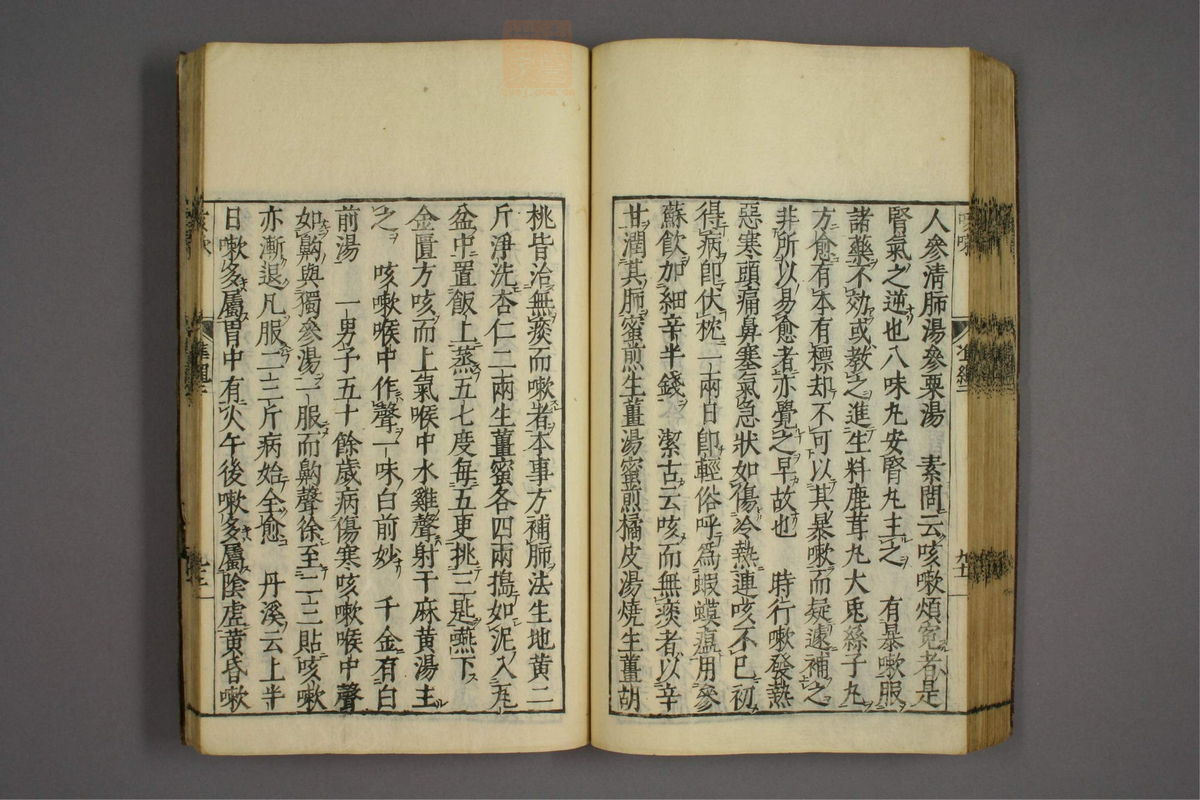 人參清肺湯參粟湯　素問云咳嗽煩寃者是
腎氣之逆也八味丸安腎丸主之　有暴嗽服
諸藥不効或教之進生料鹿茸丸大兎絲子丸
方愈有本有標却不可以其暴嗽而疑遽補之
非所以易愈者亦覺之早故也　時行嗽發熱
惡寒頭痛鼻塞氣急狀如傷冷熱連咳不已初
得病即伏枕一兩日即輕俗呼爲蝦蟆瘟用參
蘇飲加細辛半錢　潔古云咳而無痰者以辛
甘潤其肺蜜煎生薑湯蜜煎橘皮湯燒生薑胡
桃皆治無痰而嗽者本事方補肺法生地黄二
斤淨洗杏仁二兩生薑蜜各四兩搗如泥入瓦
盆中置飯上蒸五七度每五更挑三匙嚥下
金匱方咳而上氣喉中水雞聲射干麻黄湯主
之　咳嗽喉中作聲一味白前妙　千金有白
前湯　一男子五十餘歲病傷寒咳嗽喉中聲
如齁與獨參湯一服而齁聲徐至二三貼咳嗽
亦漸退凡服二三斤病始全愈　丹溪云上半
日嗽多屬胃中有火午後嗽多屬陰虛黄昏嗽